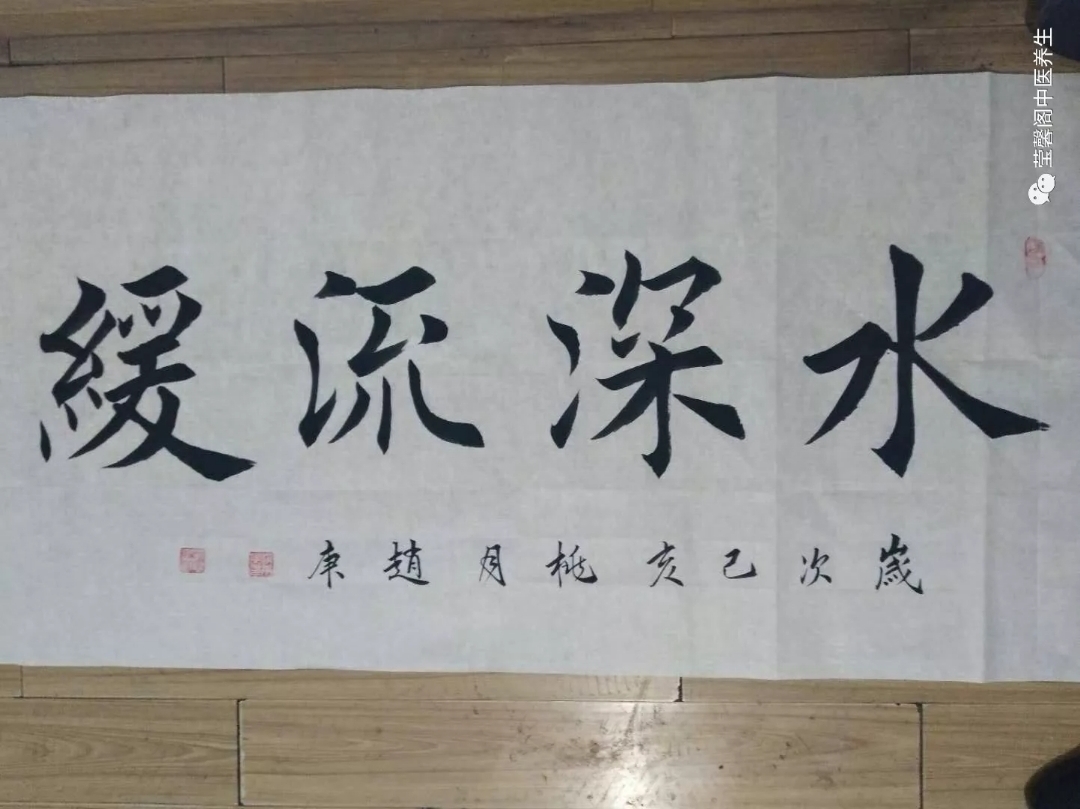 水深流緩
歲次己亥桃月趙庚
莹馨阁中医养生